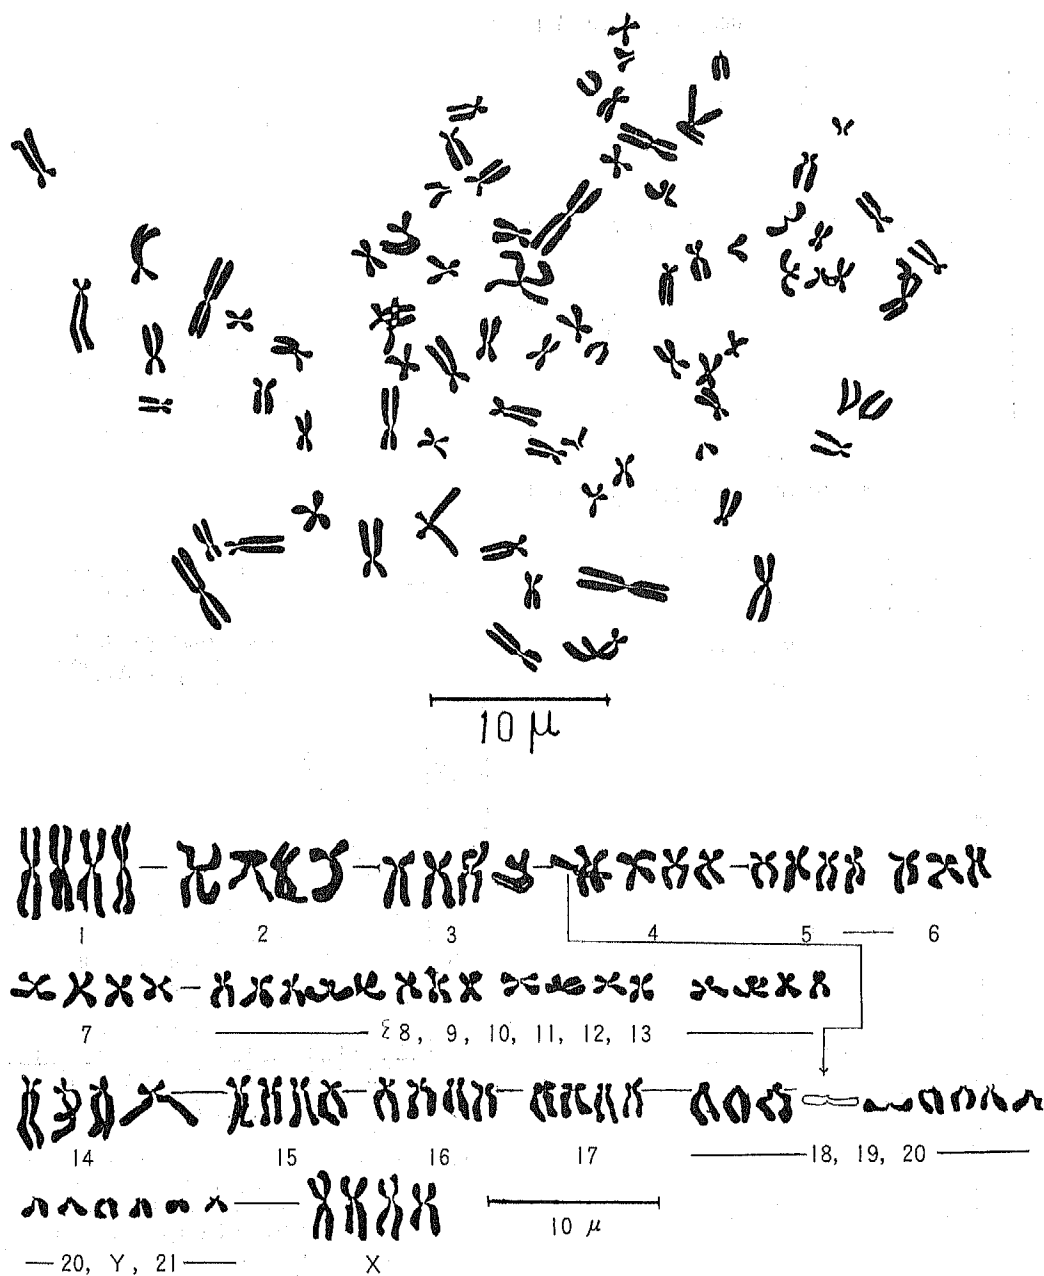 10 μ
1 2 3 4 5 6
7 8, 9, 10, 11, 12, 13
14 15 16 17 18, 19, 20
10 μ
20, Y, 21 X